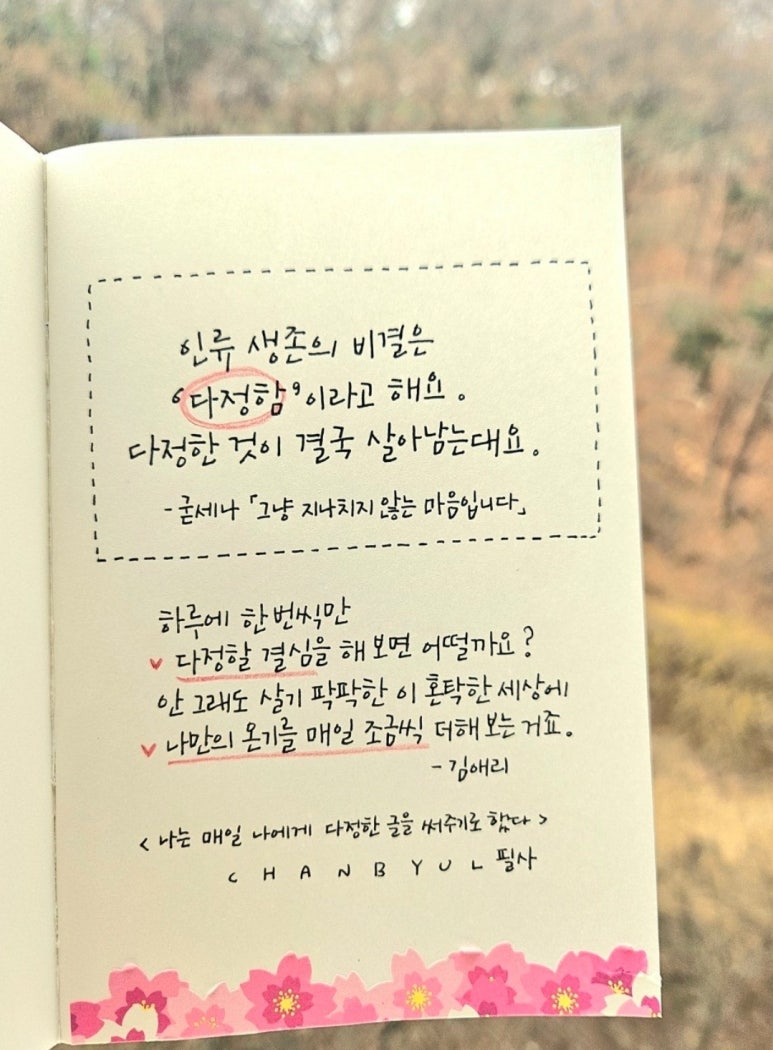 인류 생존의 비결은
'다정함'이라고 해요.
다정한 것이 결국 살아남는대요.
- 굳세나 「그냥 지나치지 않는 마음입니다」
하루에 한번씩만
다정할 결심을 해보면 어떨까요?
안 그래도 살기 팍팍한 이 혼탁한 세상에
나만의 온기를 매일 조금씩 더해보는 거죠.
- 김애리
< 나는 매일 나에게 다정한 글을 써주기로 했다 >
CHANBYUL 필사